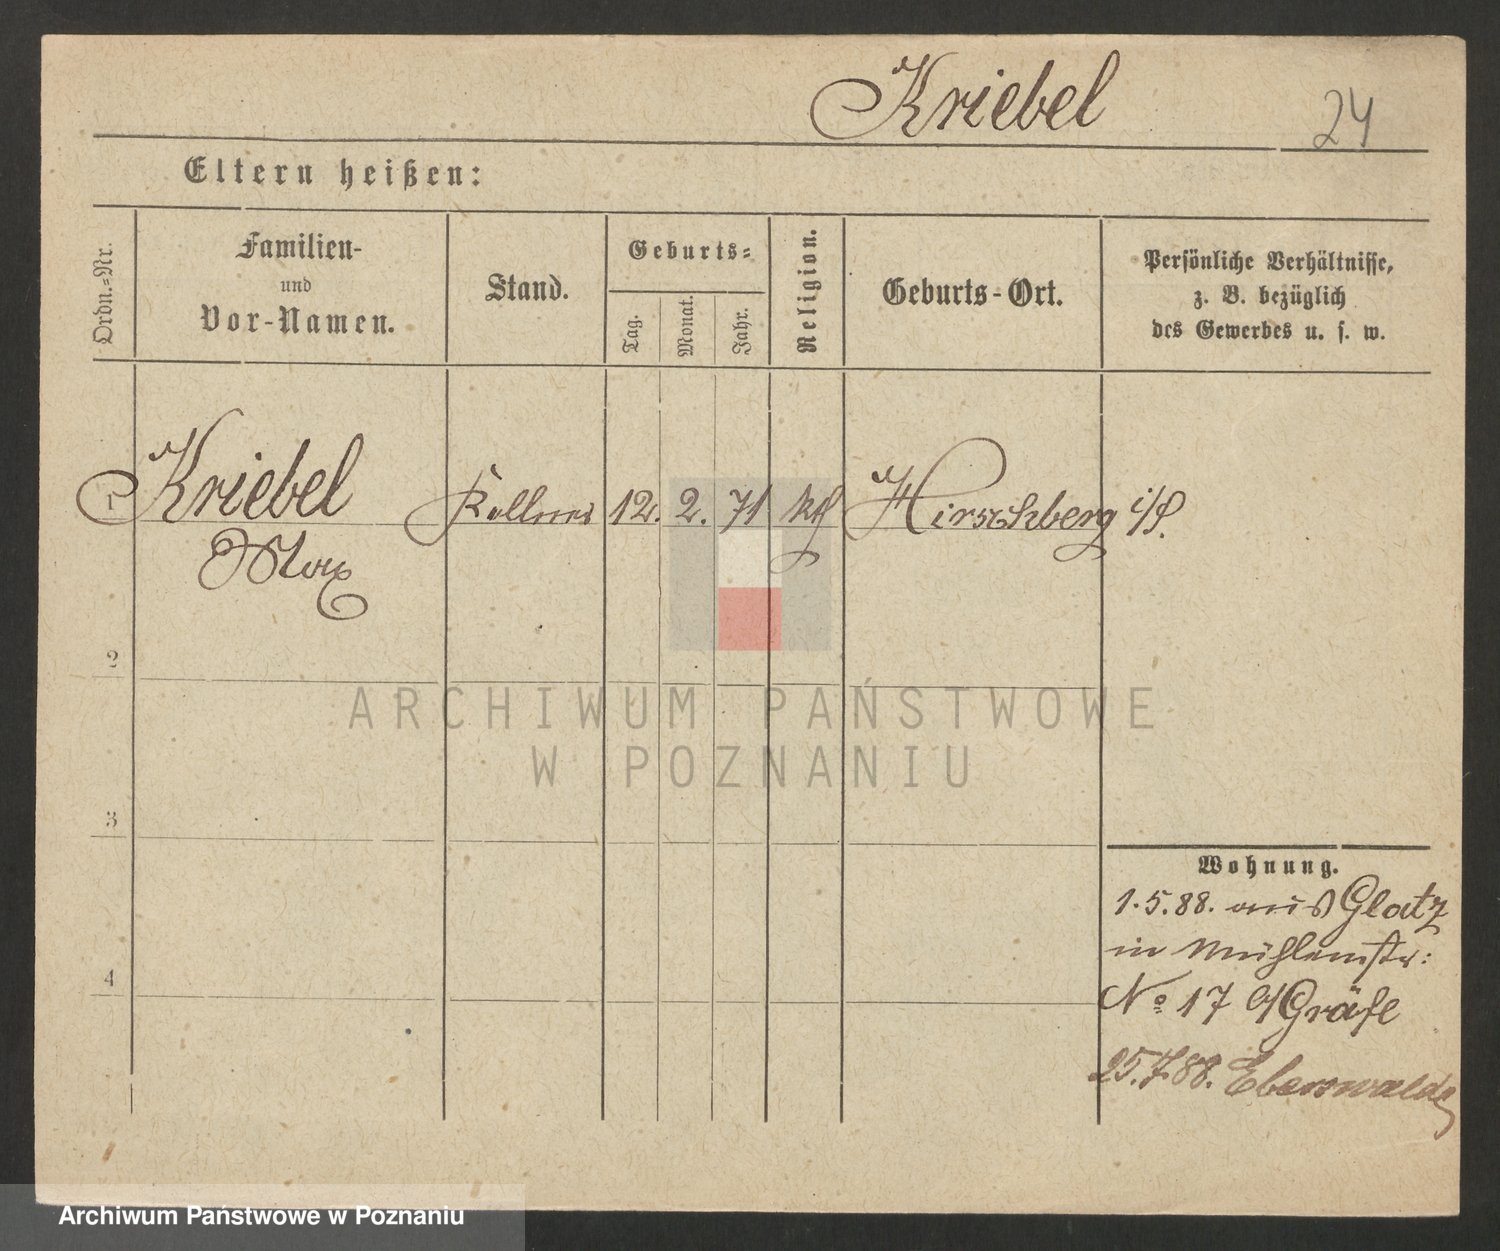 Kriebel
24
Eltern heißen:
Ordn.=Nr.
Familien-
und
Vor-Namen.
Stand.
Geburts=
Tag.
Monat.
Jahr.
Religion.
Geburts-Ort.
Persönliche Verhältnisse,
z. B. bezüglich
des Gewerbes u. s. w.
1 Kriebel Kellner 12. 2. 71 kth Hirschberg i/S.
Max
2
ARCHIWUM PAŃSTWOWE
W POZNANIU
3
Wohnung.
1.5.88. aus Glatz
in Mühlenstr:
4
No 17 Gräfe
25.7.88. Eberswalde
Archiwum Państwowe w Poznaniu